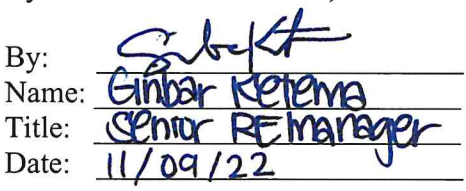 By:
Name: Ginbar Ketema
Title: Senior RE manager
Date: 11/09/22